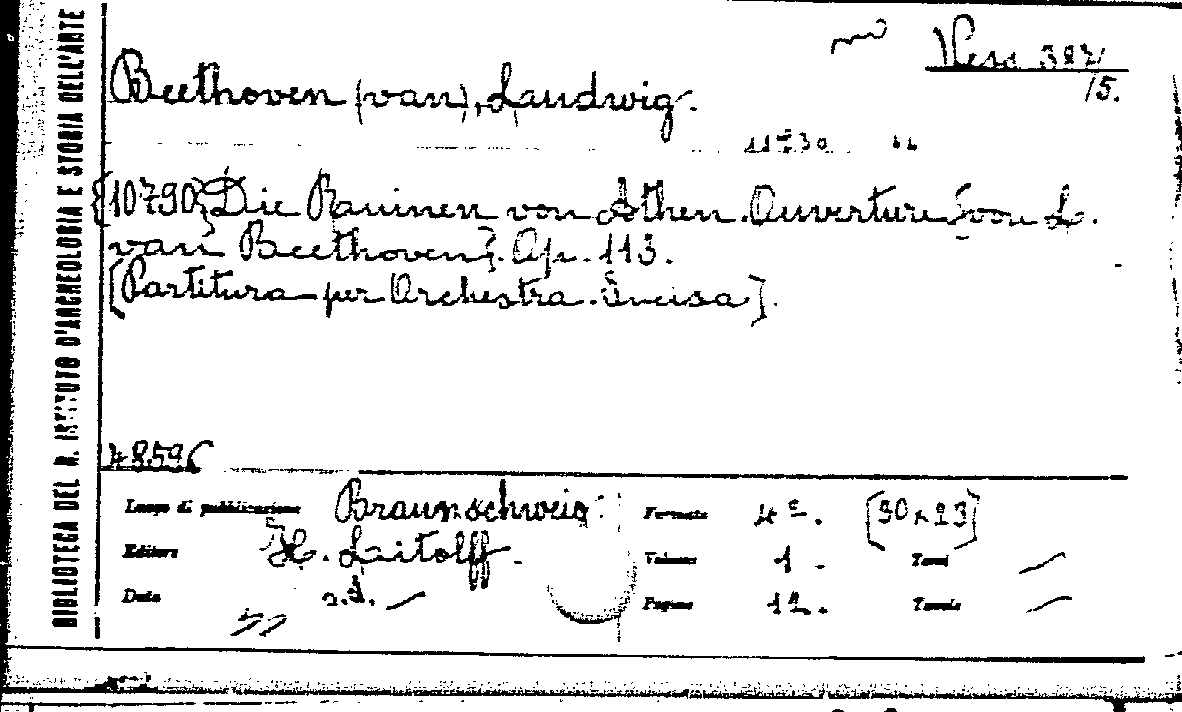 BIBLIOTECA DEL R. ISTITUTO D'ARCHEOLOGIA E STORIA DELL'ARTE
Vess 387/15.
Beethoven (van), Ludwig.
{10790} Die Ruinen von Athen. Ouverture [von L.
van Beethoven]. Op. 113.
[Partitura per Orchestra. Incisa].
48596
Luogo di pubblicazione Braunschweig. Formato 4º. [30×23]
Editore H. Litolff. Volume 1. Tomi
Data s.d. Pagine 12. Tavole